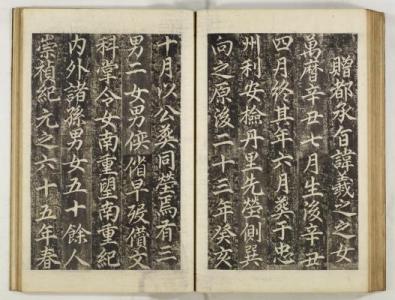 贈都承旨諱羲之之女
萬曆辛丑七月生後辛丑
四月終其年六月葬于忠
州利安搶丹里先塋側巽
向之原後二十三年癸亥
十月以公葬同塋焉有二
男二女男俁偕早歿僃文
科掌令女南重
南重紀
內外諸孫男女五十餘人
崇禎紀元之六十五年春